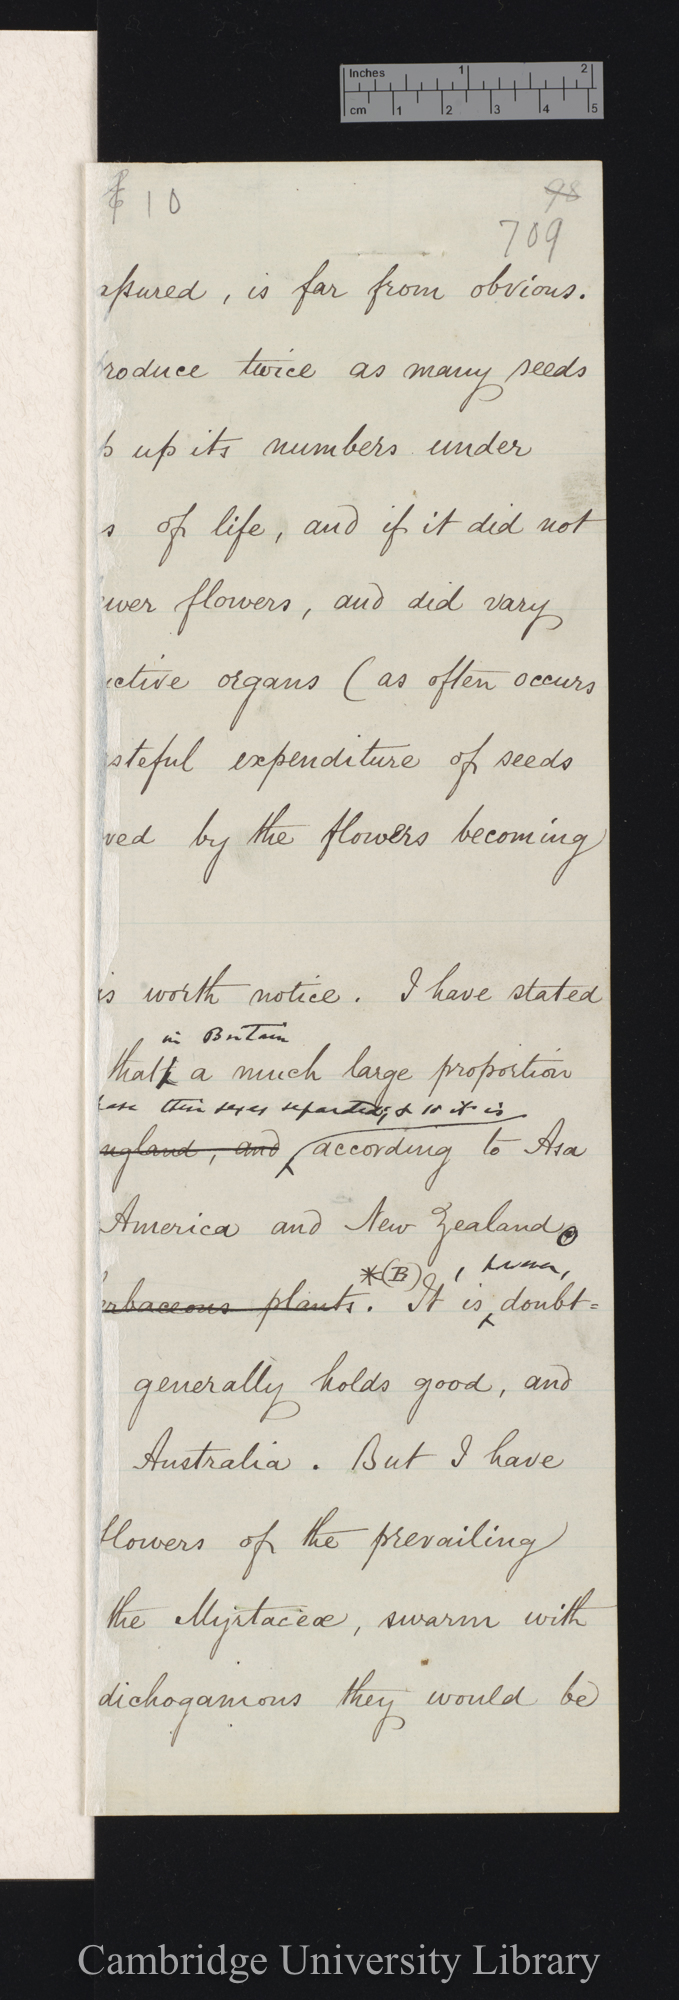 Inches 1 2
cm 1 2 3 4 5
10 98
709
assured, is far from obvious.
roduce twice as many seeds
p up its numbers under
s of life, and if it did not
ewer flowers, and did vary
uctive organs (as often occurs
asteful expenditure of seeds
ved by the flowers becoming
is worth notice. I have stated
in Britain
that a much large proportion
have their sexes separated; & so it is
ngland, and according to Asa
America and New Zealand.
*(B) , however,
erbaceous plants. It is doubt=
generally holds good, and
Australia. But I have
flowers of the prevailing
the Myrtaceæ, swarm with
dichogamous they would be
Cambridge University Library